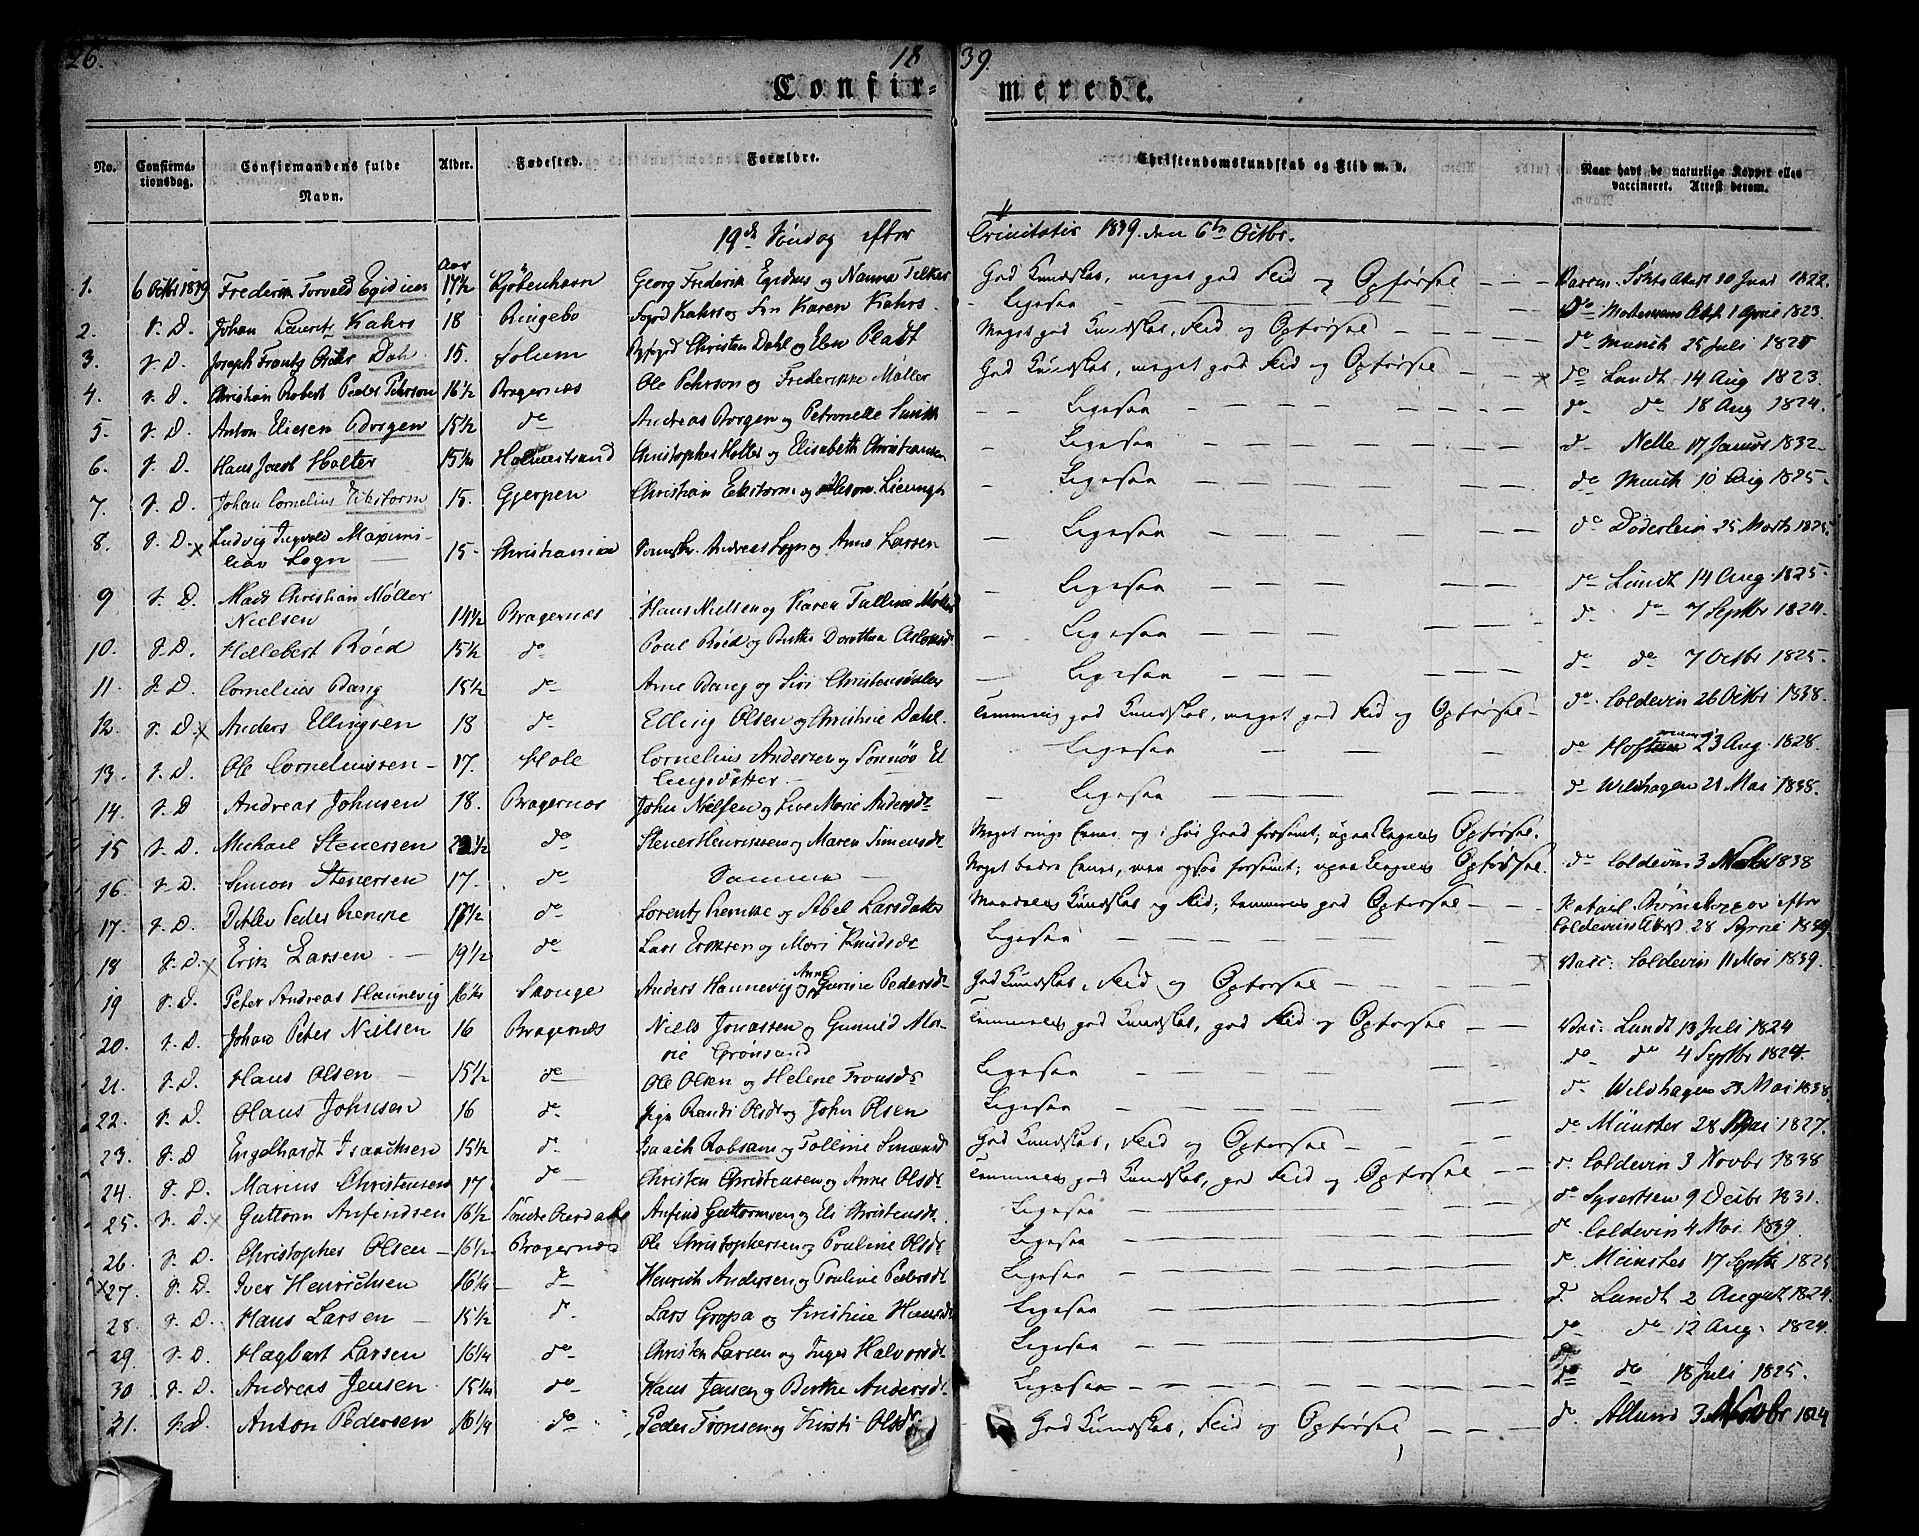 26.
18
39.
Confir-
merede.
No.
Confirma-
tionsdag.
Confirmandens fulde
Navn.
Alder.
Fødested.
Forældre.
Christendomskundskab og Flid m. v.
Naar havt de naturlige Kopper eller
vaccineret. Attest derom.
19de Søndag efter
Trinitatis 1839. den 6te Octbr.
Aar
1. 6 Octbr 1839 Frederik Torvald Egidius 17½ Kjöbenhavn Georg Frederik Egidius og Nanna God Kundskab, meget god Flid og Opførsel — — 10 Juni 1822.
2. S. D. Johan Lauritz Kahrs 18 Ringebo Fogd Kahrs og Fru Karen Kahrs - Ligesaa — — do Mortensens Att. 1 April 1823.
3. S. D. Joseph Frantz Dahl 15. Solum Christen Dahl og Elen Meget god Kundskab, Flid og Opførsel — — do Munch 25 Juli 1825
4. S. D. Christian Robert Peder Pehrson 16½ Bragernæs Ole Pehrson og Frederikke Møller God Kundskab, meget god Flid og Opførsel — — do Lundt 14 Aug 1823.
5. S. D. Anton Eliesen Borgen 15½ do Andreas Borgen og Petronelle — — Ligesaa — — do do 18 Aug 1824.
6. S. D. Hans Jacob Holter 15¼ Holmestrand Christopher Holter og Elisabeth Christiansen — Ligesaa — — do Nelle 17 Januar 1832
7. S. D. Johan Cornelius Eckstorm 15. Gjerpen Christian Eckstorm og — Ligesaa — — do Munch 10 Aug 1825.
8. S. D. x Ludvig Ingvald Maximi-
lian Sogn 15- Christiania Andreas Sogn og Anne Larsen — Ligesaa — — do Döderlein 25 Marts 1825.
9 S. D. Mads Christian Møller
Nielsen 14½ Bragernæs Hans Nielsen og Karen Talline Møller — Ligesaa — — do Lundt 14 Aug. 1825.
10. S. D. Hellebert Röed 15½ do Poul Röed og Berthe Dorothea — Ligesaa — — do do 7 Septbr 1824.
11. S. D. Cornelius Bang 15½ do Arne Bang og Siri — Ligesaa — — do do 7 Octbr 1825.
12. S. D. x Anders Ellingsen 18 do Elling Olsen og Christine Dahl. Temmelig god Kundskab, meget god Flid og Opførsel — do Coldevin 26 Octbr 1838.
13. S. D. Ole Corneliussen — 17. Hole Cornelius Andersen og El-
lingsdatter — Ligesaa — — do 23 Aug. 1828.
14. S. D Andreas Johnsen 18. Bragernæs John Nielsen og Live Marie Andersdr — Ligesaa — — do Wildhagen 21 Mai 1838.
15 S. D. Michael Stenersen do Stener Henriksen og Maren Simensdr Meget ringe Evner og i høi Grad forsømt; Opførsel.
16. S. D. Simon Stenersen 17. do Samme — Noget bedre Evner, men ogsaa forsømt; Opførsel. do Coldevin 3 1838
17. S. D. Detlev Peder Lemke 17½ do Lorentz Lemke og Abel Larsdatter Maadelig Kundskab og Flid; temmelig god Opførsel — — efter
Coldevins Attest 28 1839.
18 S. D. x Erik Larsen — 19½ do Lars Eriksen og Mari Knudsdr Ligesaa — — Vacc: Coldevin 11 Mai 1839.
19 S. D. Peter Andreas Hannevig 16¼ Sauge Anders Hannevig og Anne Gurine Pedersdr God Kundskab, Flid og Opførsel —
20. S. D. Johan Peter Nielsen 16 Bragernæs Niels Jonassen og Gunild Ma-
rie Grönsand Temmelig god Kundskab, god Flid og Opførsel — — Vac: Lundt 13 Juli 1824
21. S. D. Hans Olsen — 15½ do Ole Olsen og Helene Ligesaa — — do do 4 Septbr 1824.
22. S. D. Olaus Johnsen 16 do Randi Olsdr og John Olsen Ligesaa — — do Wildhagen 23 Mai 1838.
23. S. D Engelhardt Isaachsen 15½ do Isaach Robsam og Talline God Kundskab, Flid og Opførsel — — do Münster 28 Mai 1827.
24. S. D. Marius Christensen 17 do Christen Christensen og Anne Olsdr Temmelig god Kundskab, god Flid og Opførsel — — do Coldevin 3 Novbr 1838
25. S. D. x Guttorm Anfindsen 16½ Anfind Guttormsen og Eli Christensdr. Ligesaa — — do Syvertsen 9 Decbr 1831.
26. S. D. Christopher Olsen — 16½ Bragernæs Ole Christophersen og Pauline Olsdr Ligesaa — — do Coldevin 4 Mai 1839.
x 27. S. D. Iver Henrichsen 16¼ do Henrich Andersen og Pauline Pedersdr Ligesaa — — do Münster 17 Septbr
28. S. D. Hans Larsen — 15½ do Lars Gropa og Kirstine Hansdr Ligesaa — — do Lundt 2 August 1824.
29. S. D. Hagbart Larsen 16¼ do Christen Larsen og Inger Halvorsdr Ligesaa — — do do 12 Aug. 1824.
30 S. D. Andreas Jensen 15¼ do Hans Jensen og Berthe Andersdr Ligesaa — — do do 18 Juli 1825.
31. S. D. Anton Pedersen 16¼ do Peder og Kirsti Olsdr God Kundskab, Flid og Opførsel — — do 3 Novbr 1824